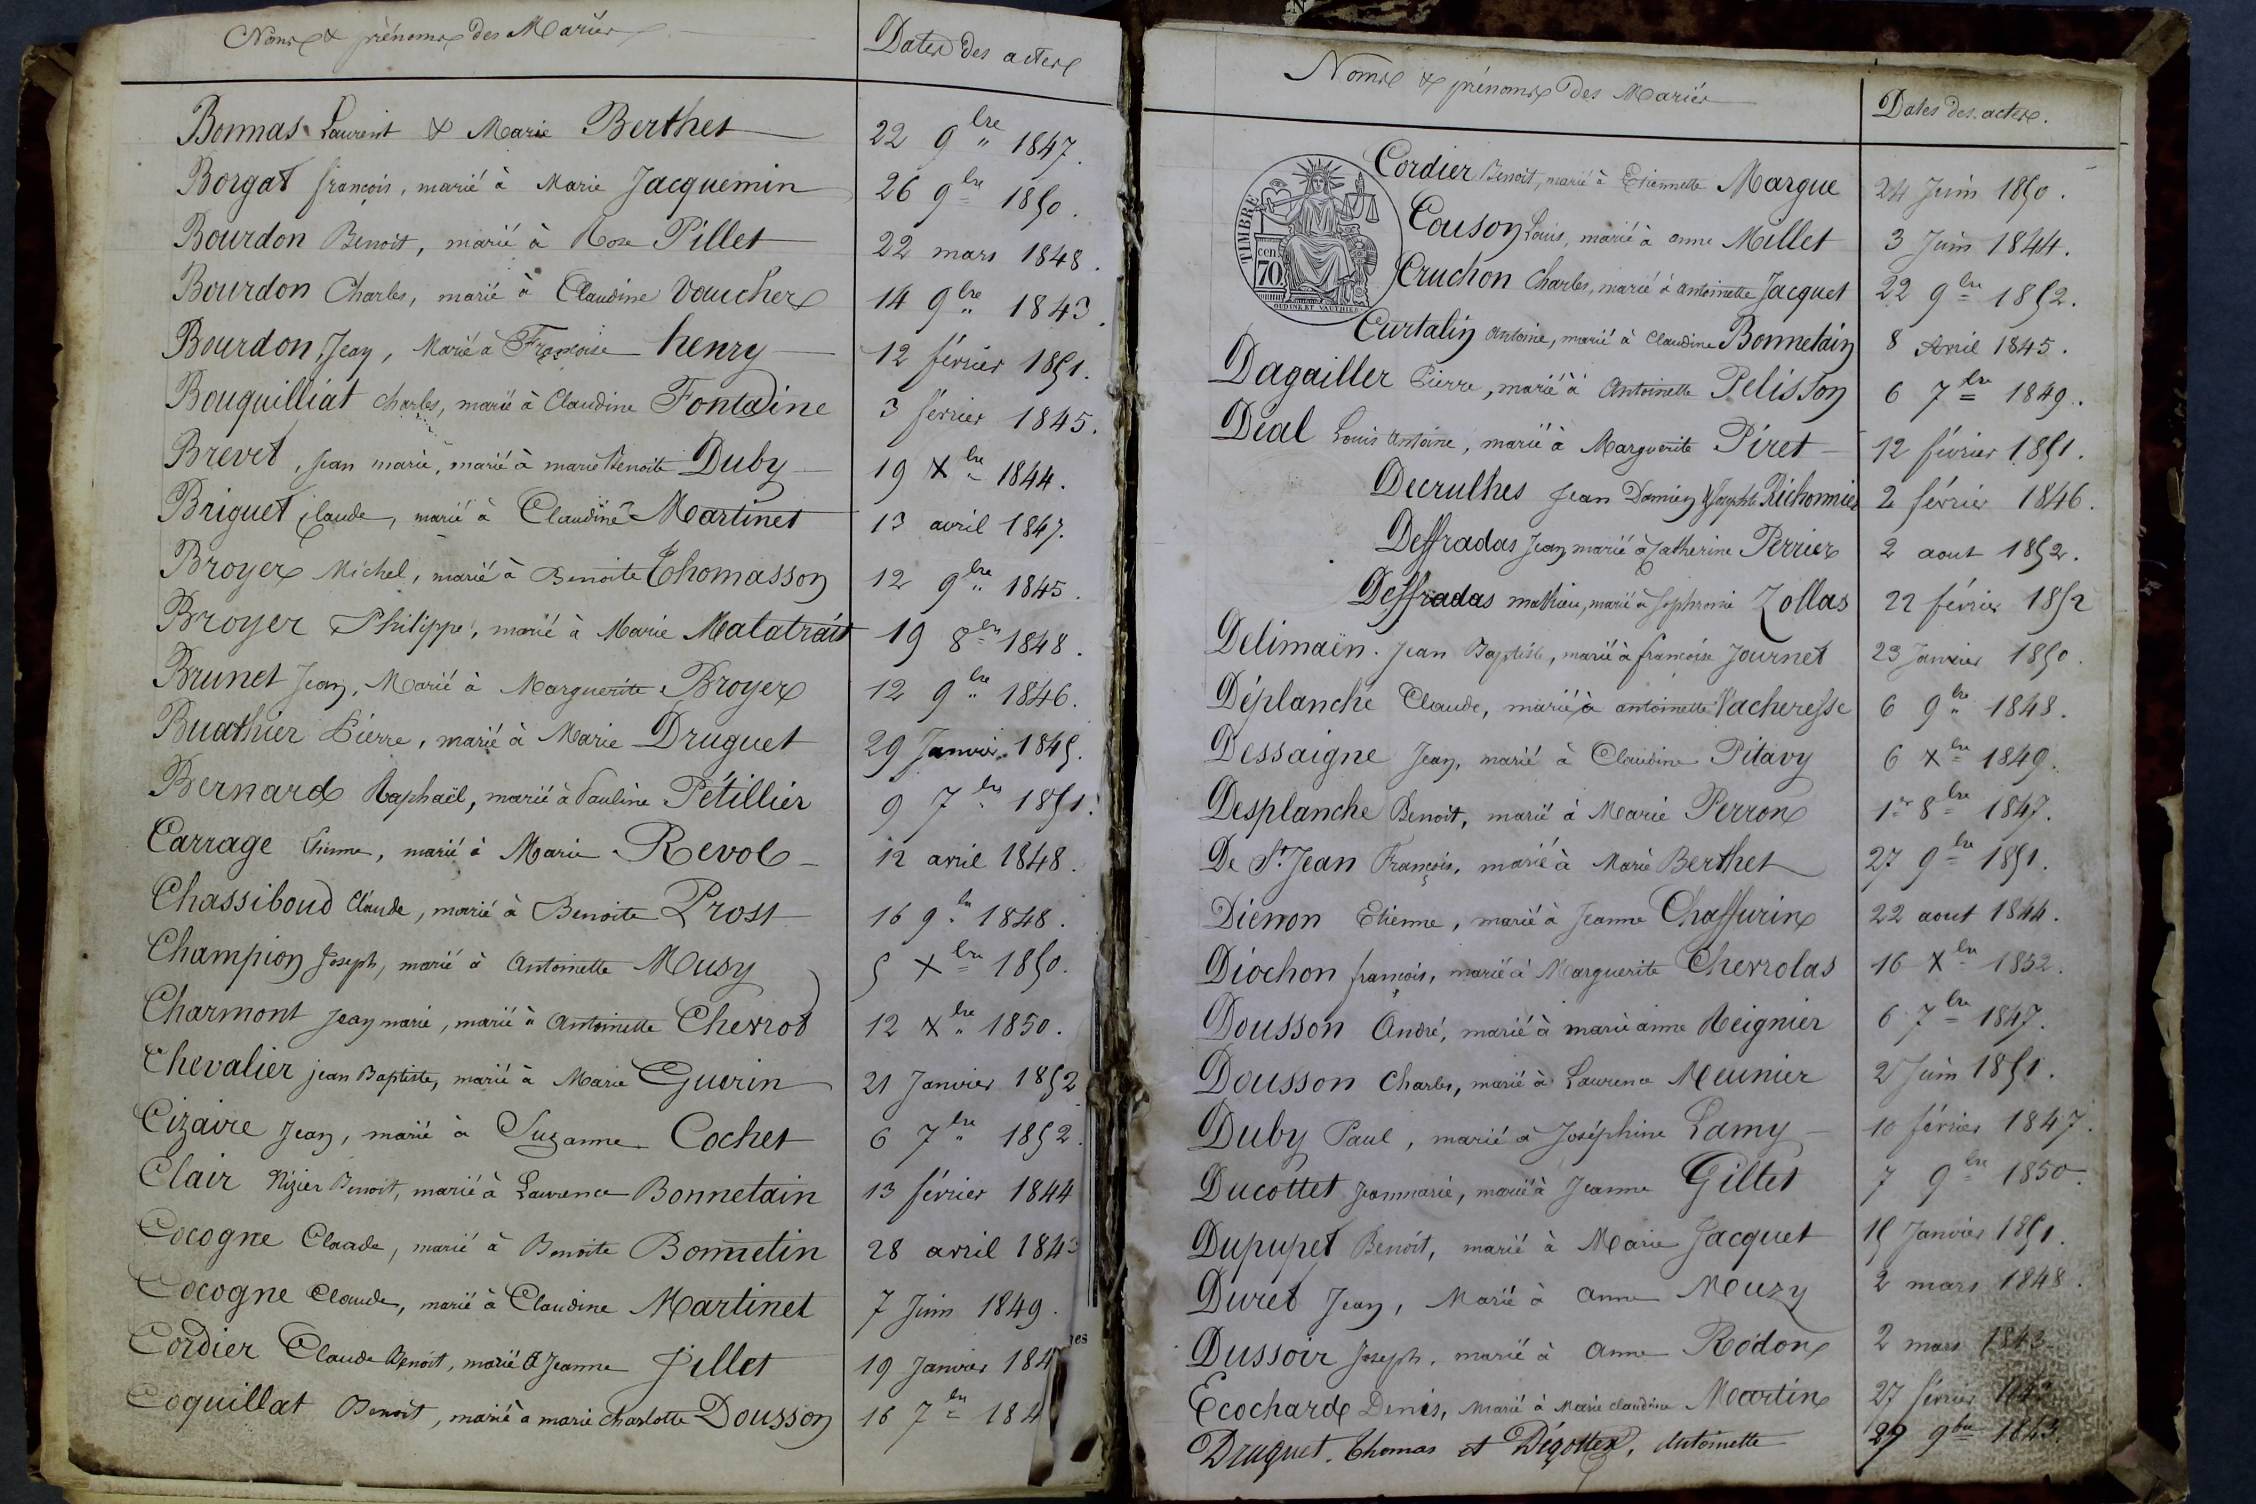 Noms & prénoms des Mariés
Dates des actes
Bonnas Laurent & Marie Berthet 22 9bre 1847.
Borgat françois, marié à Marie Jacquemin 26 9bre 1850.
Bourdon Benoit, marié à Rose Pillet 22 mars 1848.
Bourdon Charles, marié à Claudine Vaucher 14 9bre 1843.
Bourdon Jean, Marié à Françoise henry 12 février 1851.
Bouquilliat Charles, marié à Claudine Fontaine 3 février 1845.
Brevet, Jean marie, marié à marie Benoite Duby 19 Xbre 1844.
Briguet Claude, marié à Claudine Martinet 13 avril 1847.
Broyer Michel, marié à Benoite Thomasson 12 9bre 1845.
Broyer Philippe, marié à Marie Malatrait 19 8bre 1848.
Brunet Jean, Marié à Marguerite Broyer 12 9bre 1846.
Buathier Pierre, marié à Marie Druguet 29 Janvier 1845.
Bernard Raphaël, marié à Pauline Pétillier 9 7bre 1851.
Carrage Etienne, marié à Marie Revol 12 avril 1848.
Chassiboud Claude, marié à Benoite Prost 16 9bre 1848.
Champion Joseph, marié à Antoinette Musy 5 Xbre 1850.
Charmont Jean marie, marié à Antoinette Chervot 12 Xbre 1850.
Chevalier jean Baptiste, marié à Marie Guerin 21 Janvier 1852
Cizaire Jean, marié à Suzanne Cochet 6 7bre 1852.
Clair Nizier Benoit, marié à Laurence Bonnetain 13 février 1844
Cocogne Claude, marié à Benoite Bonnetin 28 avril 1843
Cocogne Claude, marié à Claudine Martinet 7 Juin 1849.
Cordier Claude Benoit, marié à Jeanne Jillet 19 Janvier 184
Coquillat Benoit, marié à marie Charlotte Dousson 16 7bre 184
Noms & prénoms des Mariés
Dates des actes.
TIMBRE
cen
70
OUDINE ET VAUTHIER
Cordier Benoit, marié à Etiennette Margue 24 Juin 1850.
Couson Louis, marié à anne Millet 3 Juin 1844.
Cruchon Charles, marié à antoinette Jacquet 22 9bre 1852.
Curtalin Antoine, marié à Claudine Bonnetain 8 Avril 1845.
Dagailler Pierre, marié à Antoinette Pelisson 6 7bre 1849.
Déal Louis Antoine, marié à Marguerite Piret 12 février 1851.
Decrulhes Jean Damien & Josephte Richonnier 2 février 1846.
Deffradas Jean marié à Catherine Perrier 2 aout 1852.
Deffradas mathieu, marié à Sophronie Zollas 22 février 1852
Delimaën. Jean Baptiste, marié à françoise Journet 23 Janvier 1850.
Déplanche Claude, marié à antoinette Vacheresse 6 9bre 1848.
Dessaigne Jean, marié à Claudine Pitavy 6 Xbre 1849.
Desplanche Benoit, marié à Marie Perron 1er 8bre 1847.
De St Jean François, marié à Marie Berthet 27 9bre 1851.
Dienon Etienne, marié à Jeanne Chaffurin 22 aout 1844.
Diochon françois, marié à Marguerite Chervolas 16 Xbre 1852.
Dousson André, marié à marie anne Reignier 6 7bre 1847.
Dousson Charles, marié à Laurence Meunier 2 Juin 1851.
Duby Paul, marié à Joséphine Lamy 10 février 1847.
Ducottet Jeanmarie, marié à Jeanne Gillet 7 9bre 1850.
Dupupet Benoit, marié à Marie Jacquet 15 Janvier 1851.
Duret Jean, Marié à Anne Muzy 2 mars 1848.
Dussoir Joseph, marié à Anne Rodon 2 mars 1843.
Ecochard Denis, Marié à Marie claudine Martin 27 février
Druguet. Thomas et Dégottex, Antoinette 29 9bre 1843.